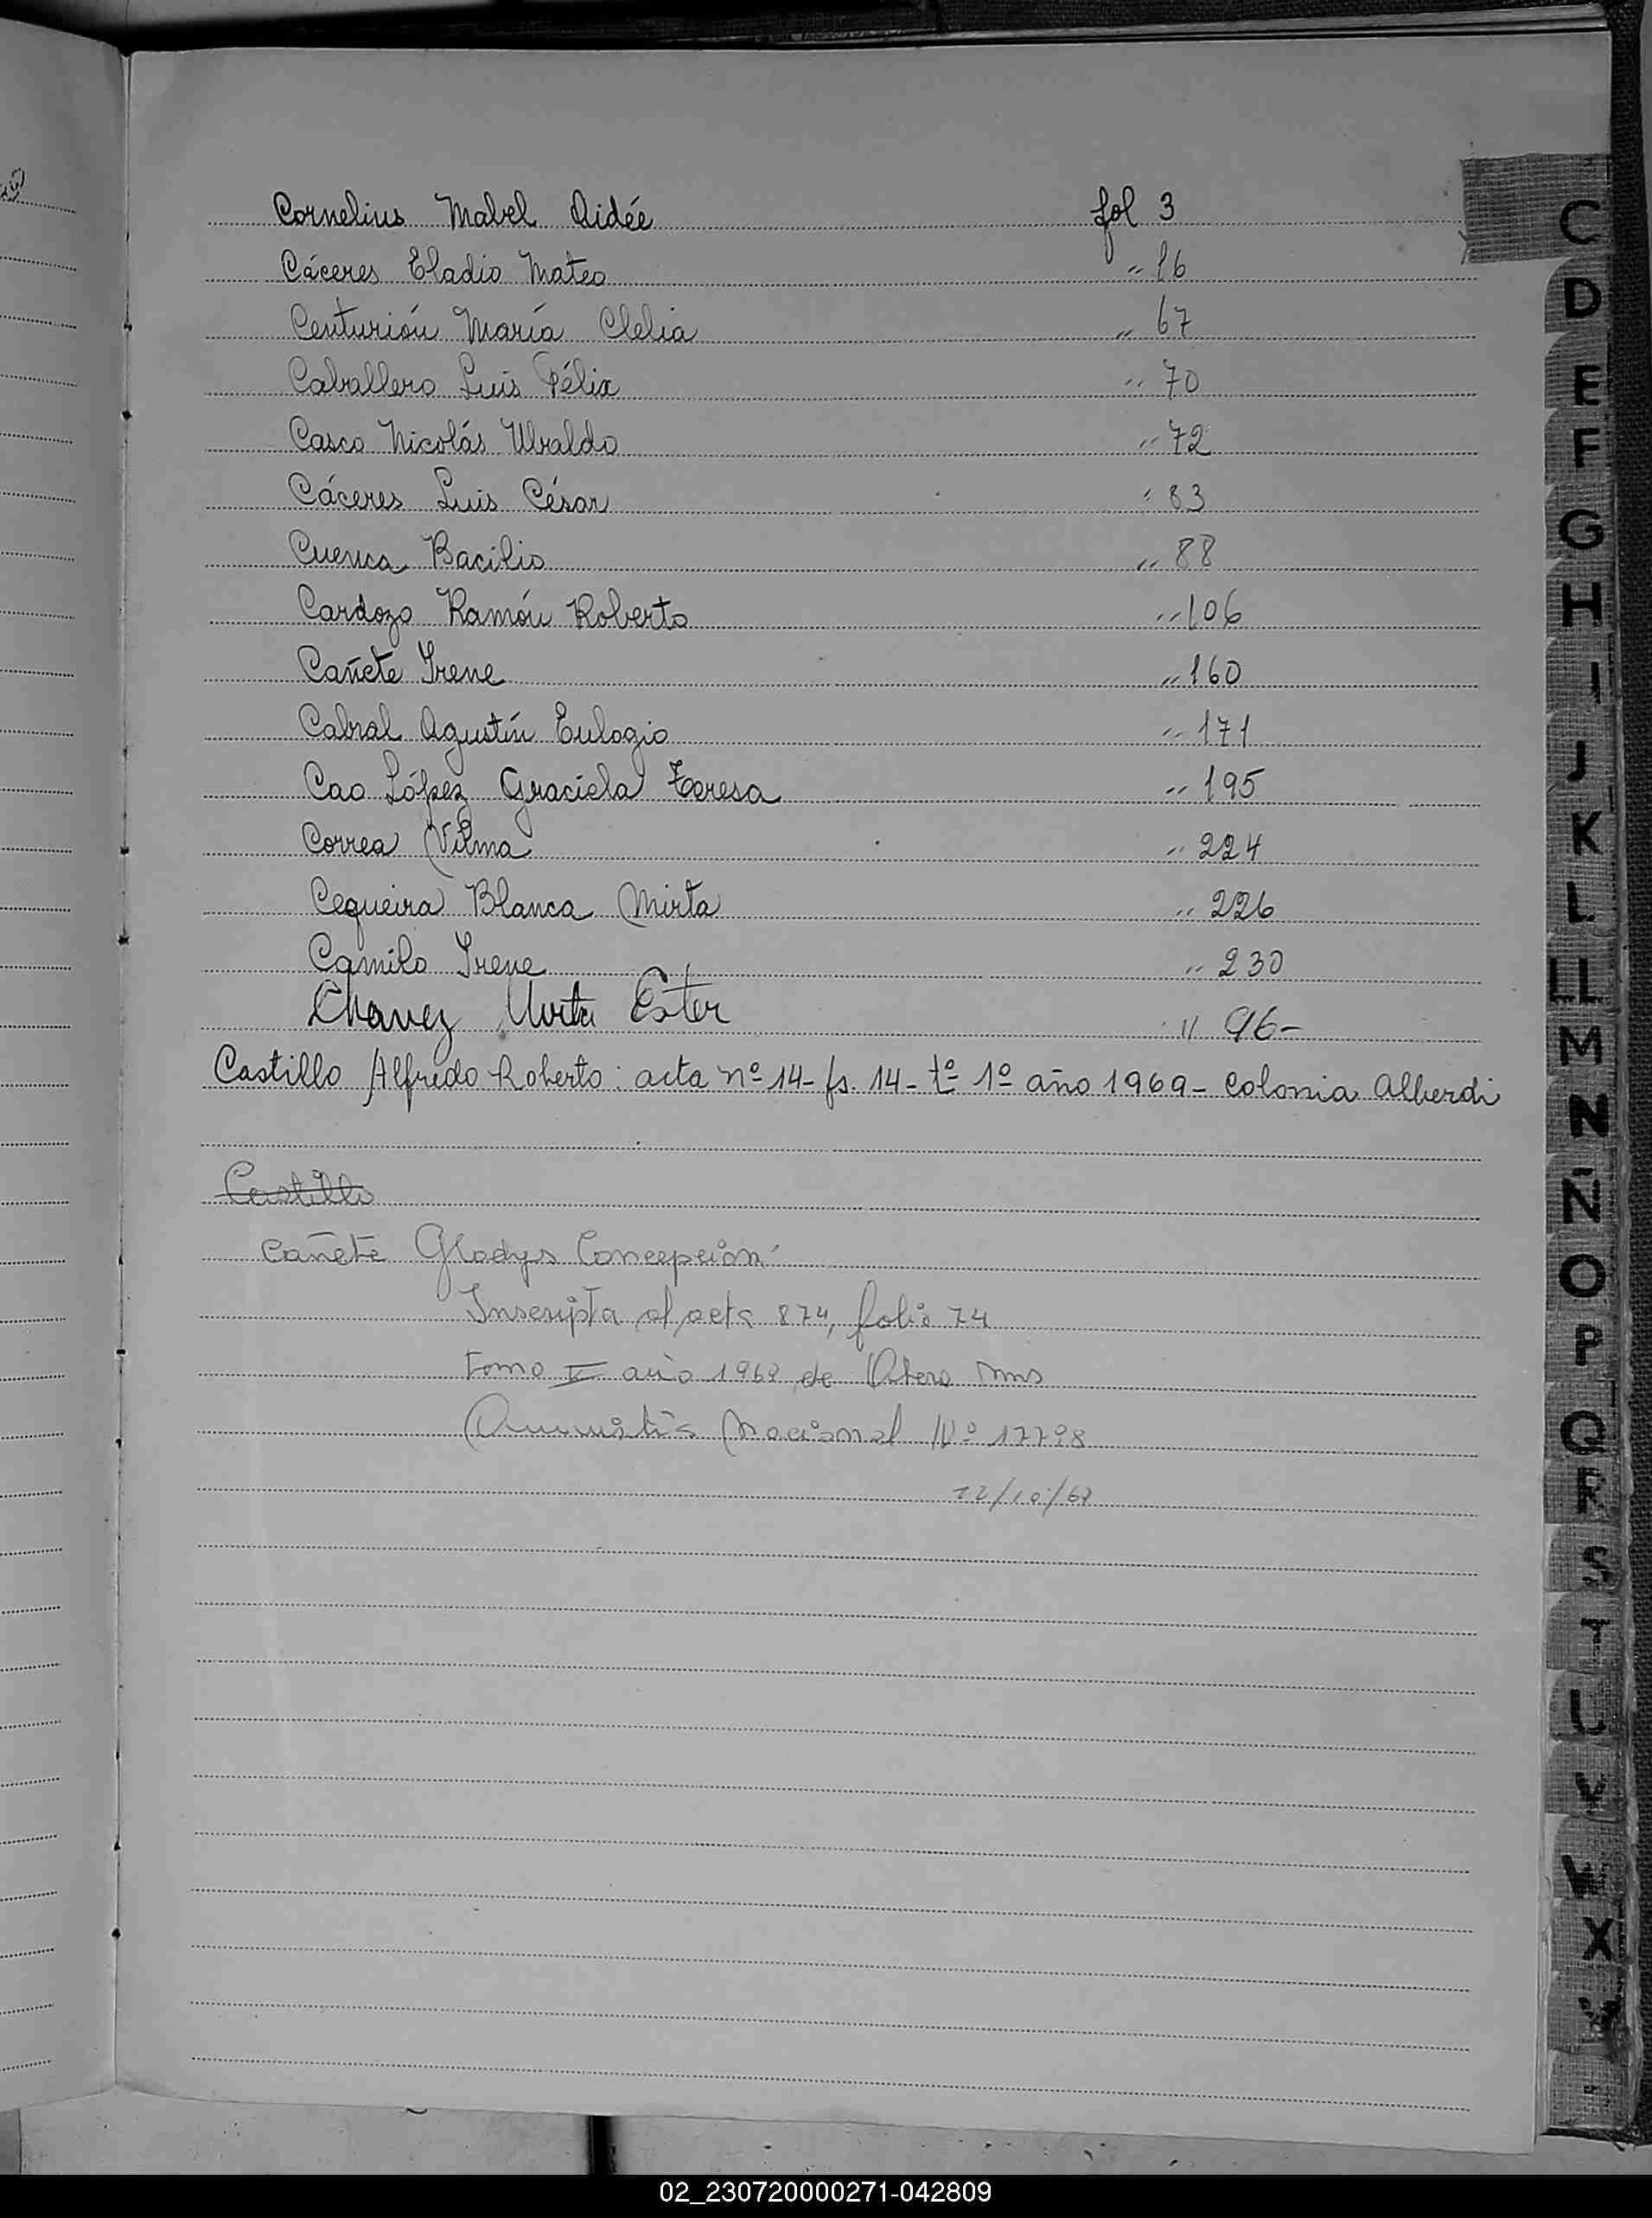 Cornelius Mabel Aidée fol 3
Cáceres Eladio Mateo " 16
Centurión María Clelia " 67
Caballero Luis Félix " 70
Casco Nicolás Ubaldo " 72
Cáceres Luis César " 83
Cuenca Bacilio " 88
Cardozo Ramón Roberto " 106
Cañete Irene " 160
Cabral Agustín Eulogio " 171
Cao López Graciela Teresa " 195
Correa Vilma " 224
Cequeira Blanca Mirta " 226
Camilo Irene " 230
Chavez Mirta Ester " 96-
Castillo Alfredo Roberto: acta nº 14- fs. 14- tº 1º año 1969- Colonia Alberdi
Castillo
Cañete Gladys Concepción
Inscripta al acta 874, folio 74
Tomo V año 1968 de
Nacional Nº 17798
12/10/68
C
D
E
F
G
H
I
J
K
L
LL
M
N
Ñ
O
P
Q
R
S
T
U
V
W
X
Y
02_230720000271-042809